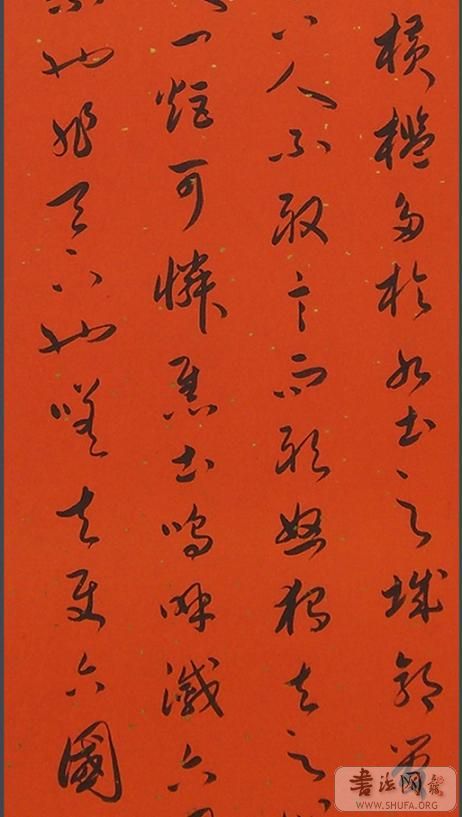 橫檻多於九土之城郭管
人不敢言而敢怒獨夫之
一炬可憐焦土嗚呼滅六
也非天下也嗟夫使六國
書法网
WWW.SHUFA.ORG